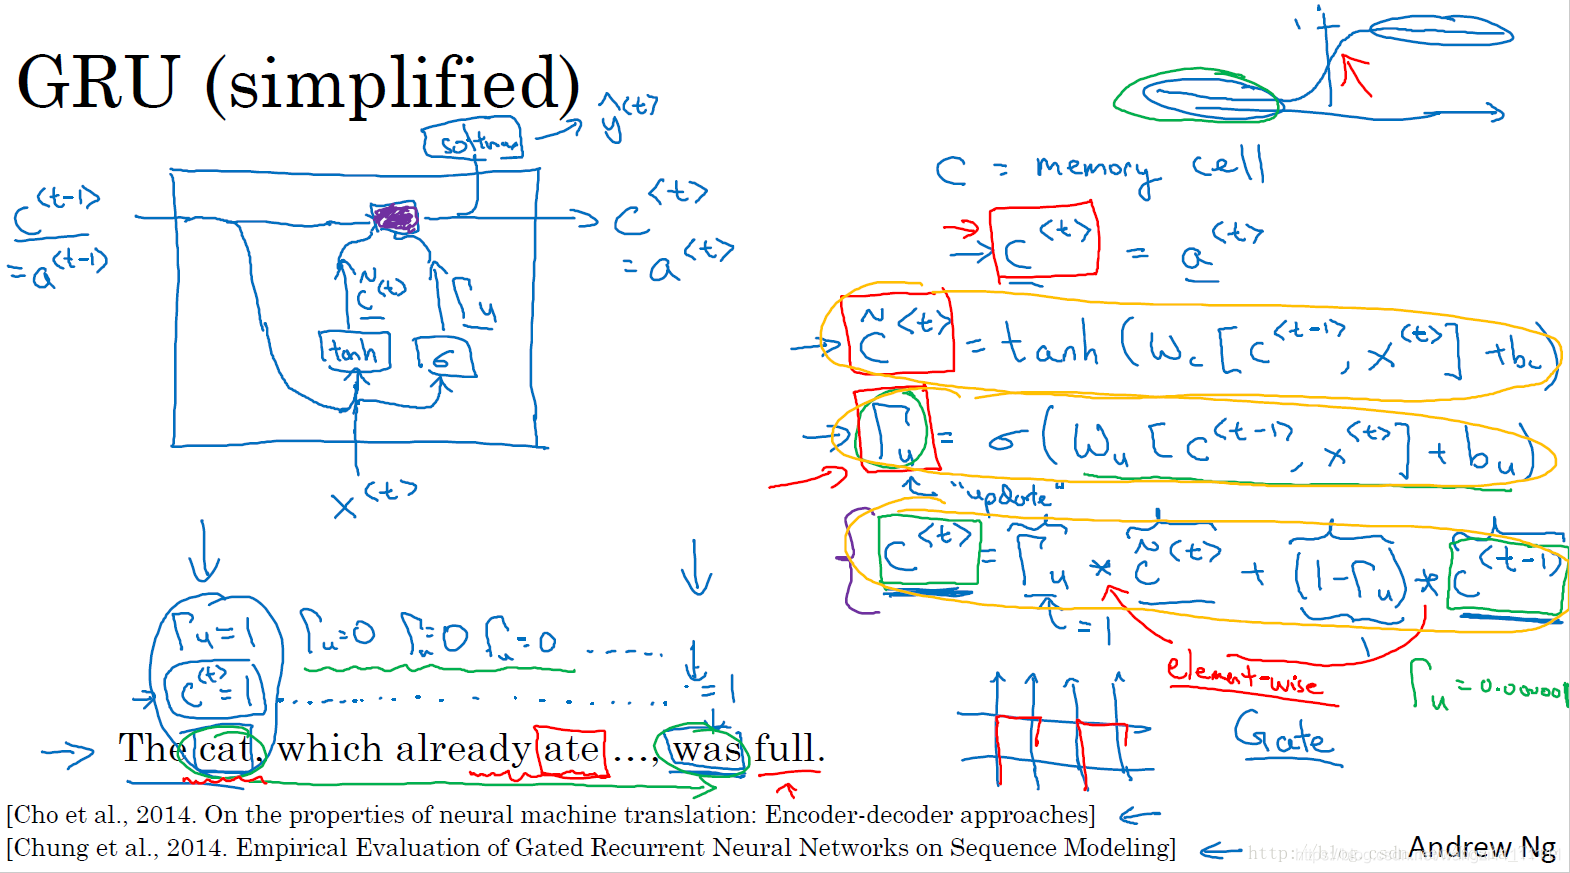 GRU (simplified)
softmax
ŷ<t>
c<t-1>
= a<t-1>
c<t>
= a<t>
c̃<t>
Γu
tanh
σ
x<t>
c = memory cell
c<t> = a<t>
c̃<t> = tanh(Wc[c<t-1>, x<t>] + bc)
Γu = σ(Wu[c<t-1>, x<t>] + bu)
"update"
c<t> = Γu * c̃<t> + (1-Γu) * c<t-1>
= 1
element-wise
Γu = 0.000001
Gate
Γu=1 Γu=0 Γu=0 Γu=0 ......
c<t>=1 ............ = 1
The cat, which already ate ..., was full.
[Cho et al., 2014. On the properties of neural machine translation: Encoder-decoder approaches]
[Chung et al., 2014. Empirical Evaluation of Gated Recurrent Neural Networks on Sequence Modeling]
Andrew Ng